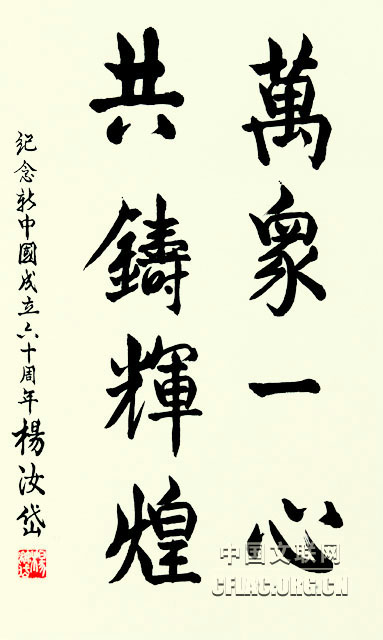 萬眾一心
共鑄輝煌
紀念新中國成立六十周年 楊汝岱
中国文联网
CFLAC.ORG.CN